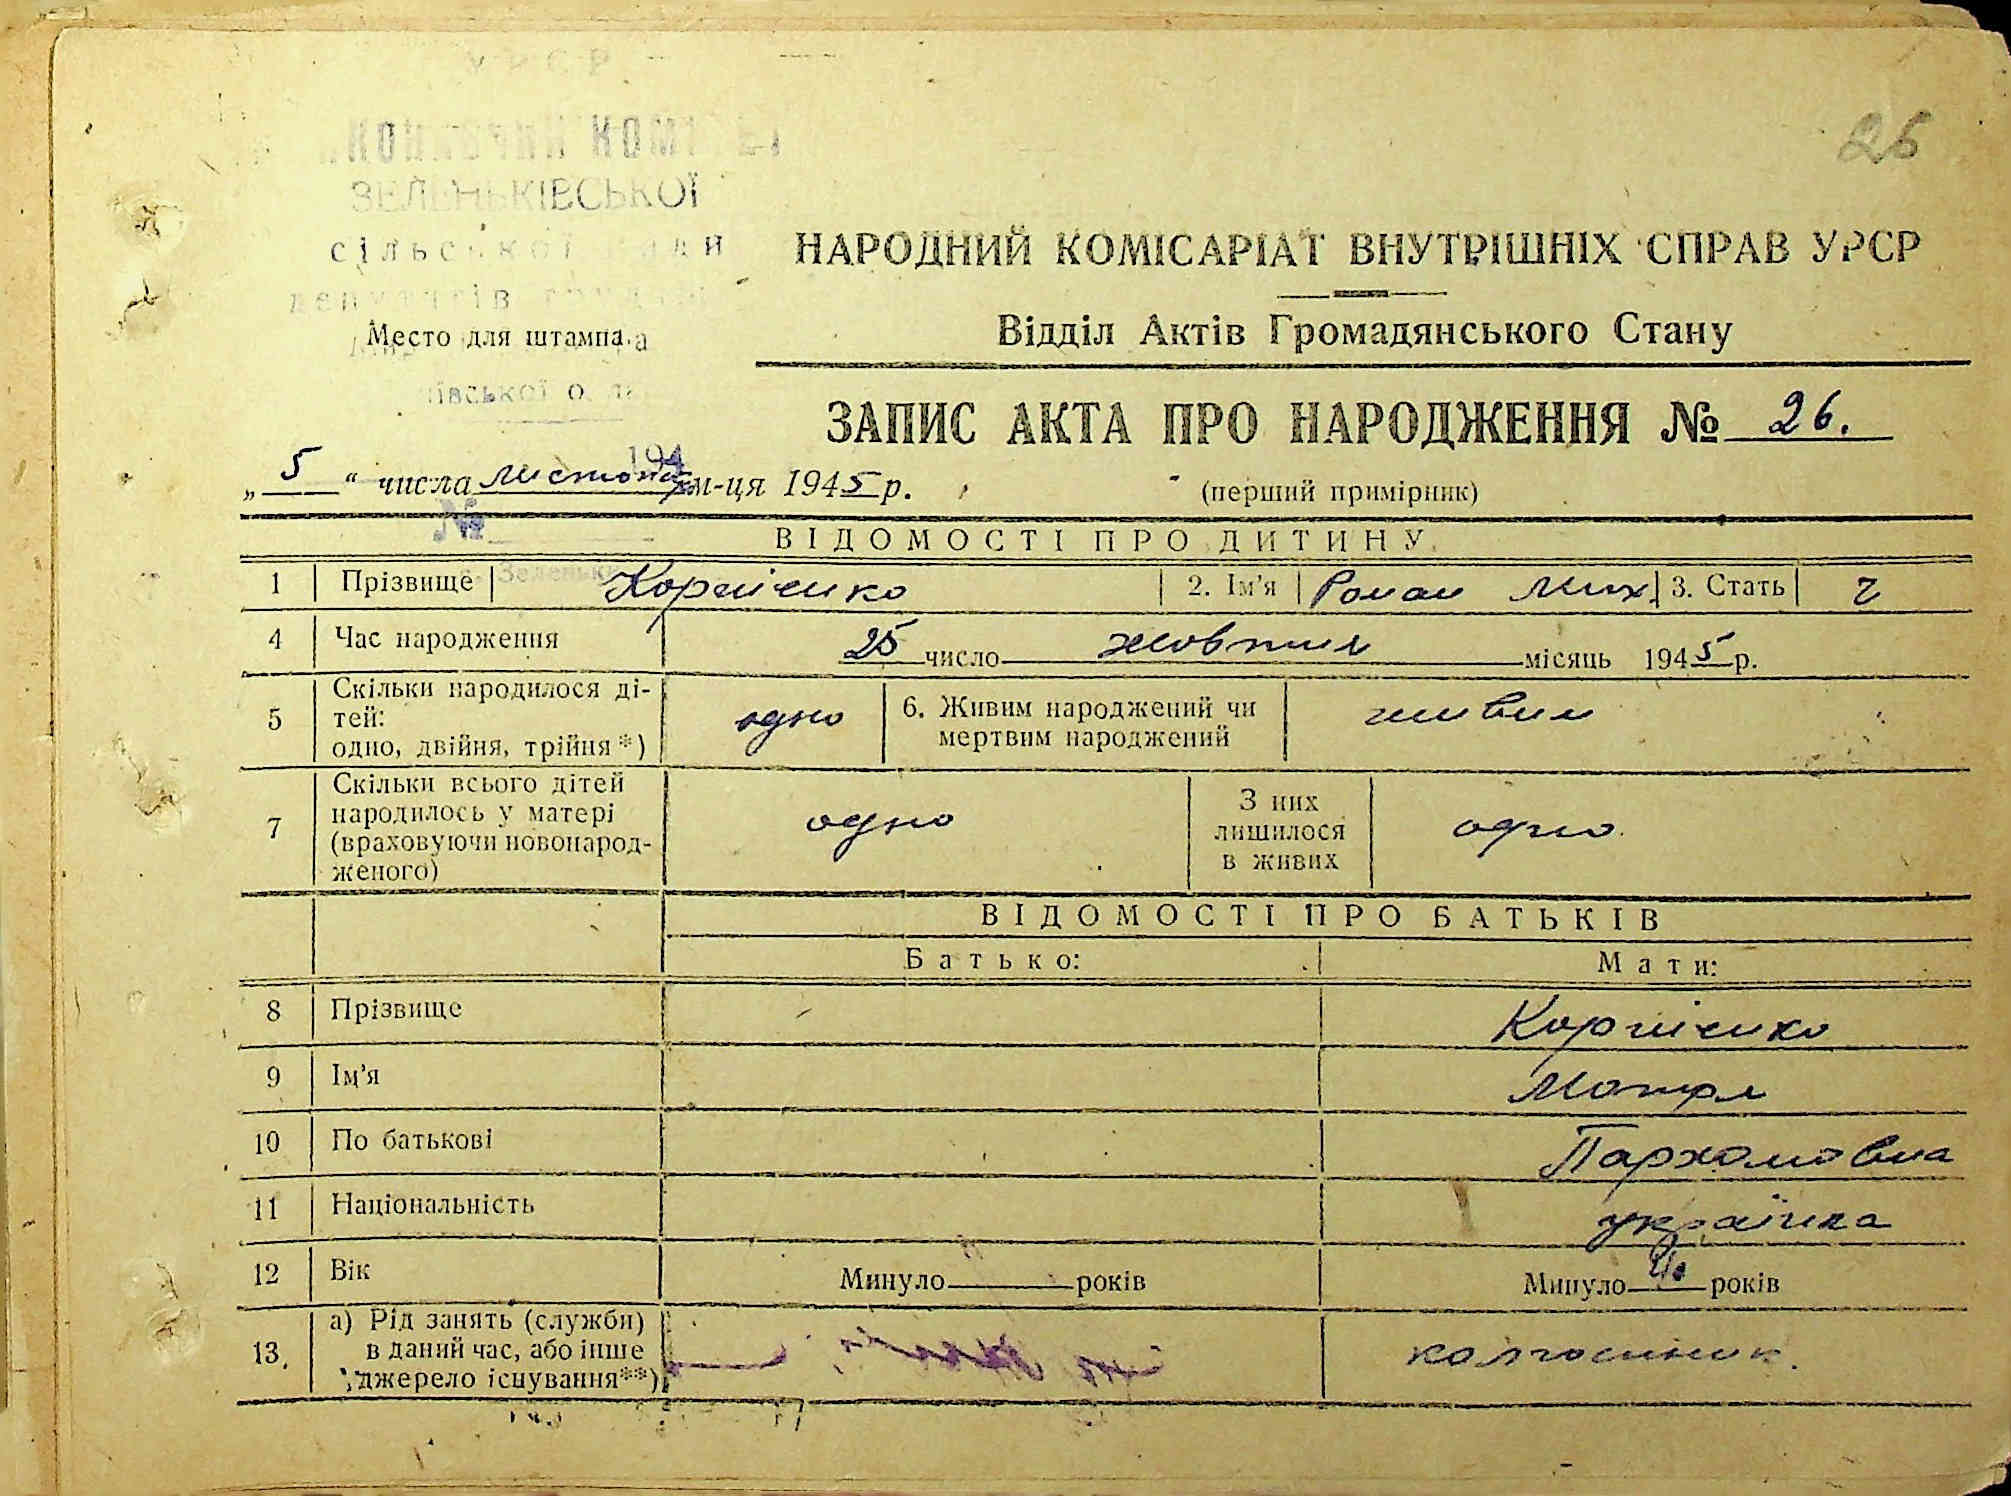 УРСР
ЗЕЛЕНЬКІВСЬКОЇ
сільської ради
депутатів
26
НАРОДНИЙ КОМІСАРІАТ ВНУТРІШНІХ СПРАВ УРСР
Место для штампа
Відділ Актів Громадянського Стану
ЗАПИС АКТА ПРО НАРОДЖЕННЯ № 26.
„5“ числа листопад м-ця 1945 р.
(перший примірник)
194
№
ВІДОМОСТІ ПРО ДИТИНУ
1 Прізвище Корнієнко 2. Ім'я Роман Мих. 3. Стать ч
4 Час народження 25 число жовтня місяць 1945 р.
5 Скільки народилося ді-
тей:
одно, двійня, трійня*) одно 6. Живим народжений чи
мертвим народжений живим
7 Скільки всього дітей
народилось у матері
(враховуючи новонарод-
женого) одно З них
лишилося
в живих одно
ВІДОМОСТІ ПРО БАТЬКІВ
Батько: Мати:
8 Прізвище Корнієнко
9 Ім'я Мотря
10 По батькові Пархомовна
11 Національність українка
12 Вік Минуло років Минуло років
13. а) Рід занять (служби)
в даний час, або інше
джерело існування**) колгоспник.